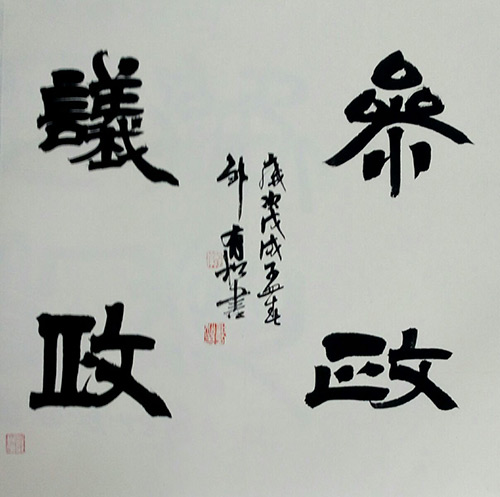 參政
議政
歲次戊戌孟春
有松書